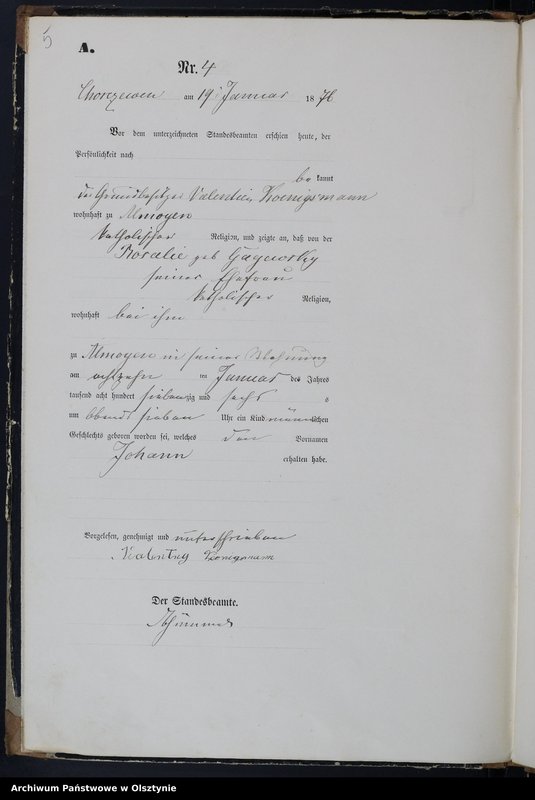 5
A.
Nr. 4
Chorczewen am 19 Januar 1876
Vor dem unterzeichneten Standesbeamten erschien heute, der
Persönlichkeit nach
be kannt
der Grundbesitzer Valentin Koenigsmann
wohnhaft zu Almoyen
katholischer Religion, und zeigte an, daß von der
Rosalie geb Gayewsky
seiner Ehefrau
katholischer Religion,
wohnhaft bei ihm
zu Almoyen in seiner Wohnung
am achtzehn ten Januar des Jahres
tausend acht hundert siebenzig und sechs
um Abends sieben Uhr ein Kind männlichen
Geschlechts geboren worden sei, welches den Vornamen
Johann erhalten habe.
Vorgelesen, genehmigt und unterschrieben
Valentin Konigsmann
Der Standesbeamte.
Archiwum Państwowe w Olsztynie